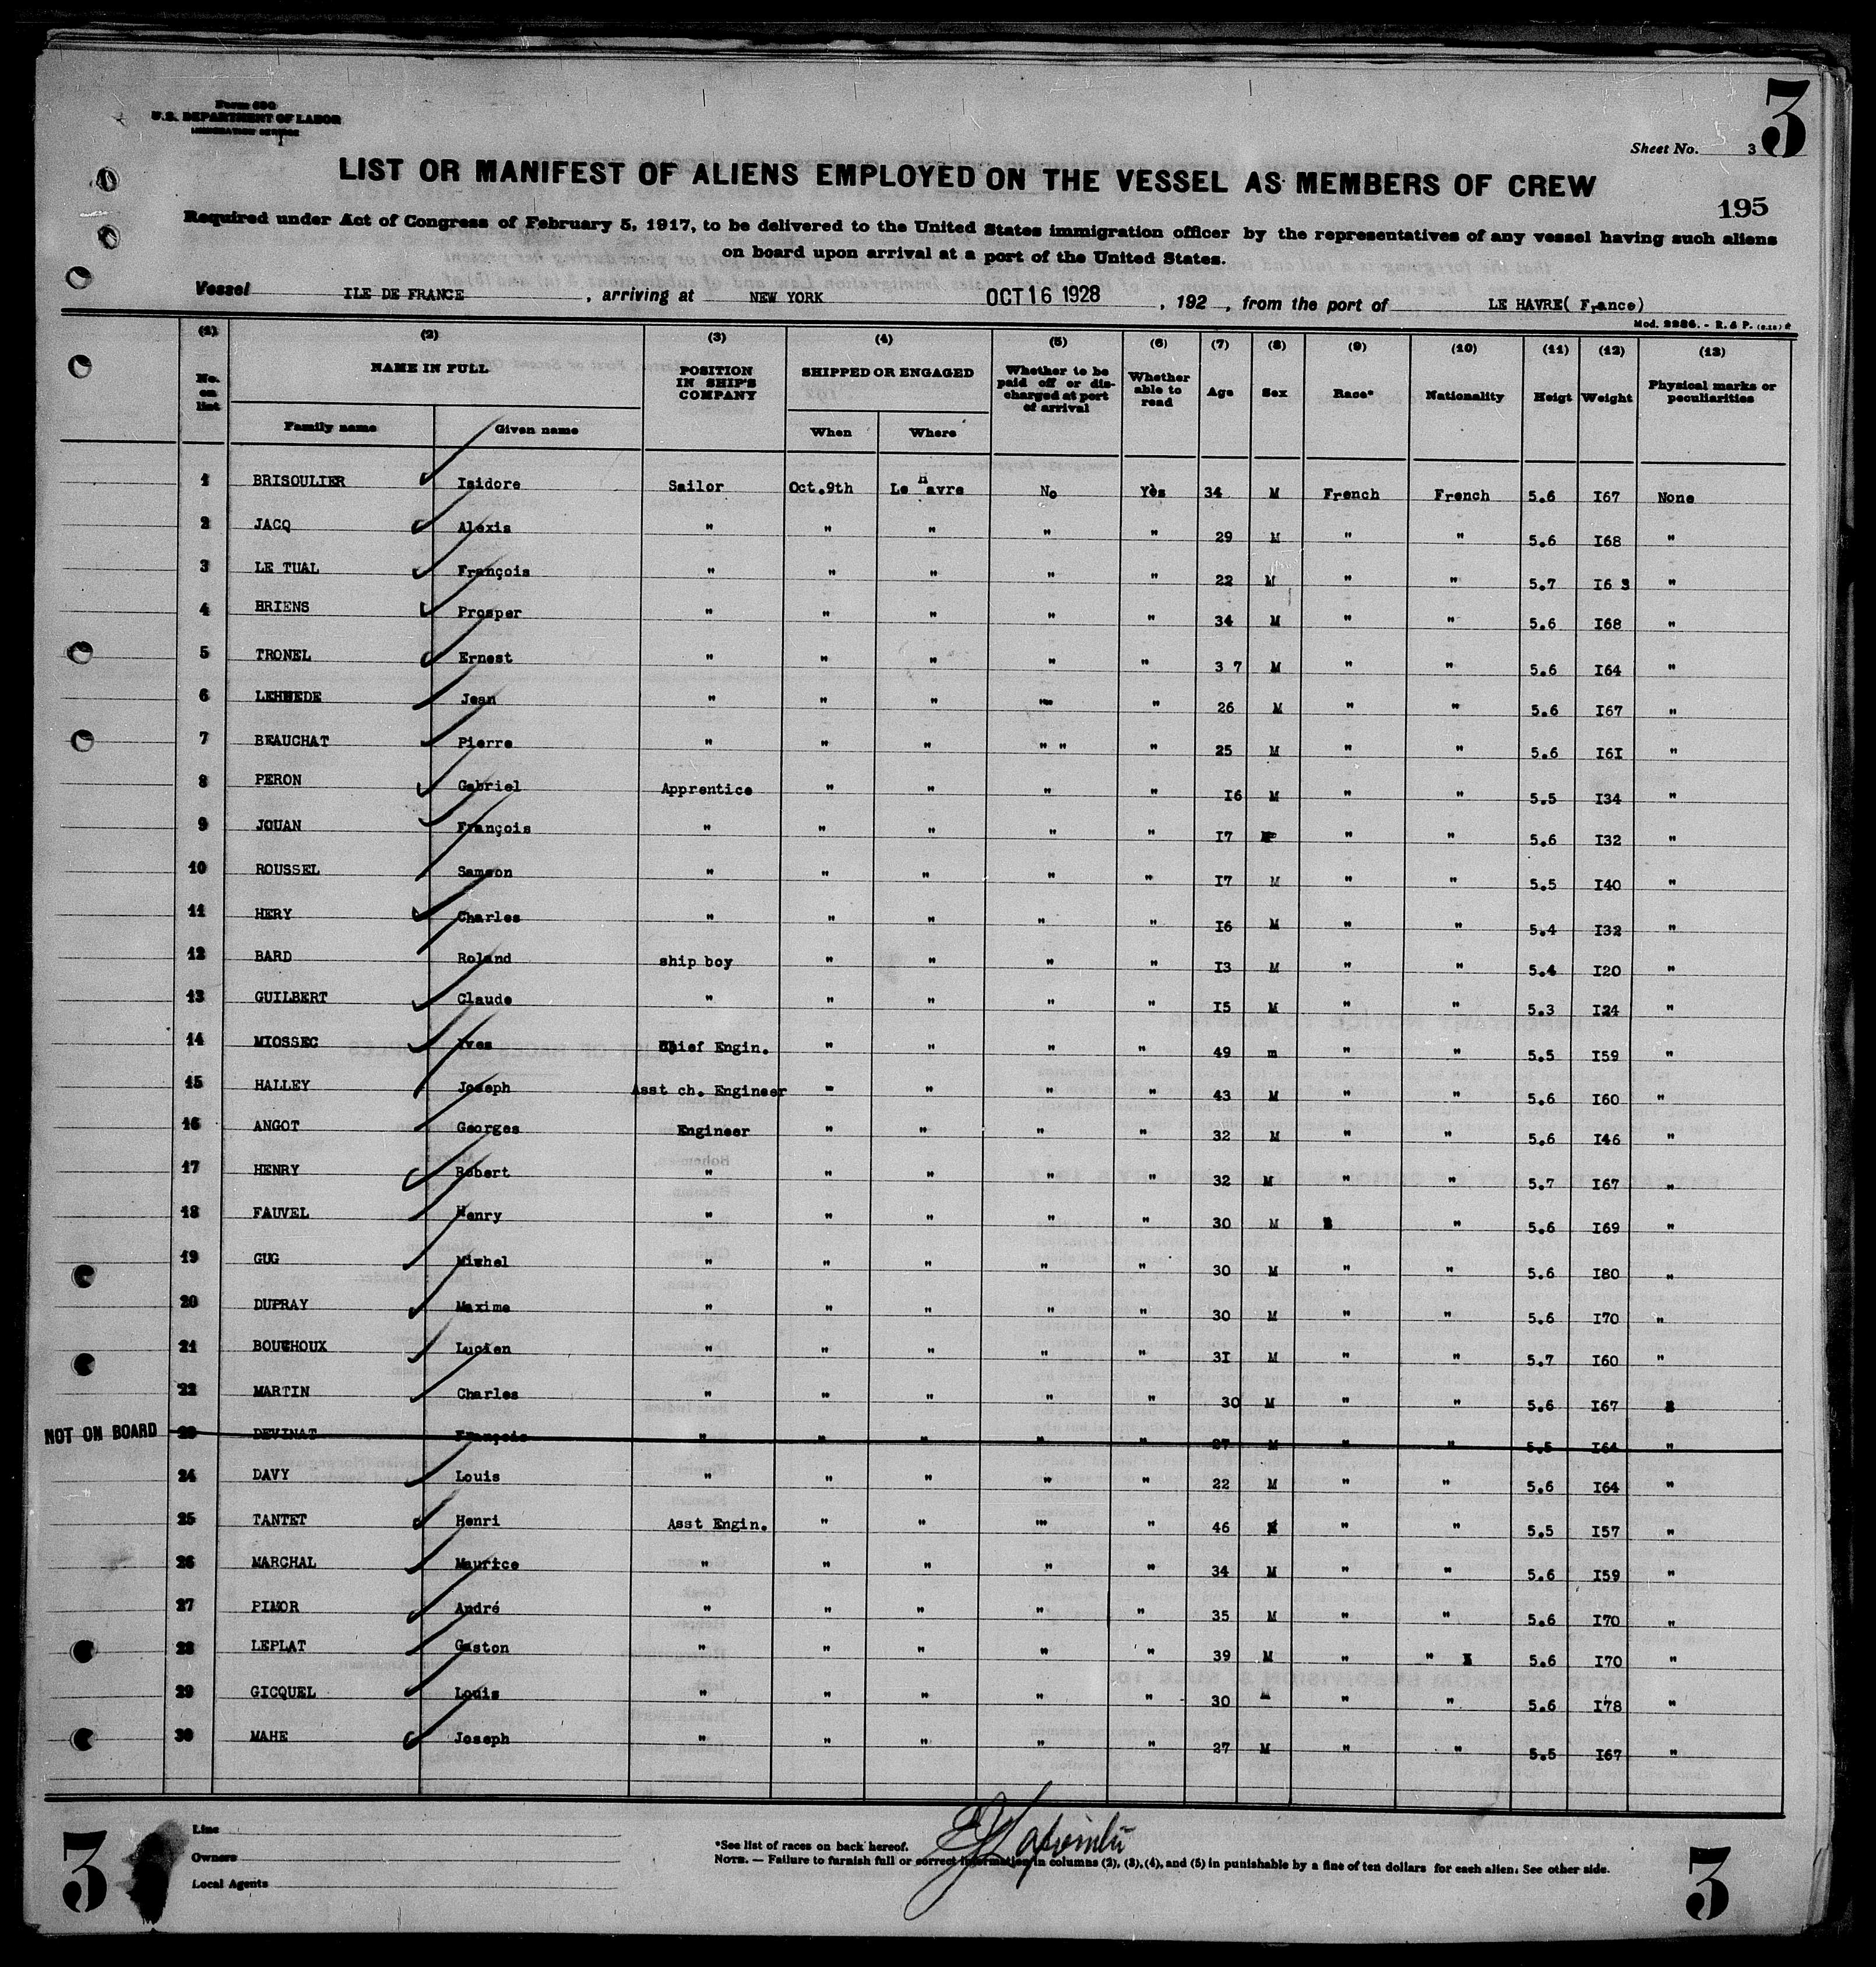 Form 680
U.S. DEPARTMENT OF LABOR
IMMIGRATION SERVICE
3
Sheet No. 3
LIST OR MANIFEST OF ALIENS EMPLOYED ON THE VESSEL AS MEMBERS OF CREW
195
Required under Act of Congress of February 5, 1917, to be delivered to the United States immigration officer by the representatives of any vessel having such aliens
on board upon arrival at a port of the United States.
Vessel ILE DE FRANCE , arriving at NEW YORK OCT 16 1928 , 192 , from the port of LE HAVRE( France)
Mod. 2286. - R. & P.
(1) (2) (3) (4) (5) (6) (7) (8) (9) (10) (11) (12) (13)
No. on list NAME IN FULL POSITION IN SHIP'S COMPANY SHIPPED OR ENGAGED Whether to be paid off or discharged at port of arrival Whether able to read Age Sex Race* Nationality Heigt Weight Physical marks or peculiarities
Family name Given name When Where
1 BRISOULIER Isidore Sailor Oct.9th Le Havre No Yès 34 M French French 5.6 I67 None
2 JACQ Alexis " " " " " 29 M " " 5.6 I68 "
3 LE TUAL François " " " " " 22 M " " 5.7 I6 3 "
4 BRIENS Prosper " " " " " 34 M " " 5.6 I68 "
5 TRONEL Ernest " " " " " 3 7 M " " 5.6 I64 "
6 LEHEDE Jean " " " " " 26 M " " 5.6 I67 "
7 BEAUCHAT Pierre " " " " " " 25 M " " 5.6 I6I "
8 PERON Gabriel Apprentice " " " " I6 M " " 5.5 I34 "
9 JOUAN François " " " " " I7 " " 5.6 I32 "
10 ROUSSEL Samson " " " " " I7 M " " 5.5 I40 "
11 HERY Charles " " " " " I6 M " " 5.4 I32 "
12 BARD Roland ship boy " " " " I3 M " " 5.4 I20 "
13 GUILBERT Claude " " " " " I5 M " " 5.3 I24 "
14 MIOSSEC Yves Chief Engin. " " " " 49 m " " 5.5 I59 "
15 HALLEY Joseph Asst ch. Engineer " " " " 43 M " " 5.6 I60 "
16 ANGOT Georges Engineer " " " " 32 M " " 5.6 I46 "
17 HENRY Robert " " " " " 32 M " " 5.7 I67 "
18 FAUVEL Henry " " " " " 30 M " 5.6 I69 "
19 GUG Mishel " " " " " 30 M " " 5.6 I80 "
20 DUPRAY Maxime " " " " " 30 M " " 5.6 I70 "
21 BOUCHOUX Lucien " " " " " 3I M " " 5.7 I60 "
22 MARTIN Charles " " " " " 30 M " " 5.6 I67
NOT ON BOARD 23 DEVINAT François " " " " " 27 M " " 5.5 I64 "
24 DAVY Louis " " " " " 22 M " " 5.6 I64 "
25 TANTET Henri Asst Engin. " " " " 46 " " 5.5 I57 "
26 MARCHAL Maurice " " " " " 34 M " " 5.6 I59 "
27 PIMOR André " " " " " 35 M " " 5.6 I70 "
28 LEPLAT Gaston " " " " " 39 M " " 5.6 I70 "
29 GICQUEL Louis " " " " " 30 M " " 5.6 I78 "
30 MAHE Joseph " " " " " 27 M " " 5.5 I67 "
Line
Owners
Local Agents
*See list of races on back hereof.
NOTE. — Failure to furnish full or correct information in columns (2), (3), (4), and (5) in punishable by a fine of ten dollars for each alien. See other side.
3
3